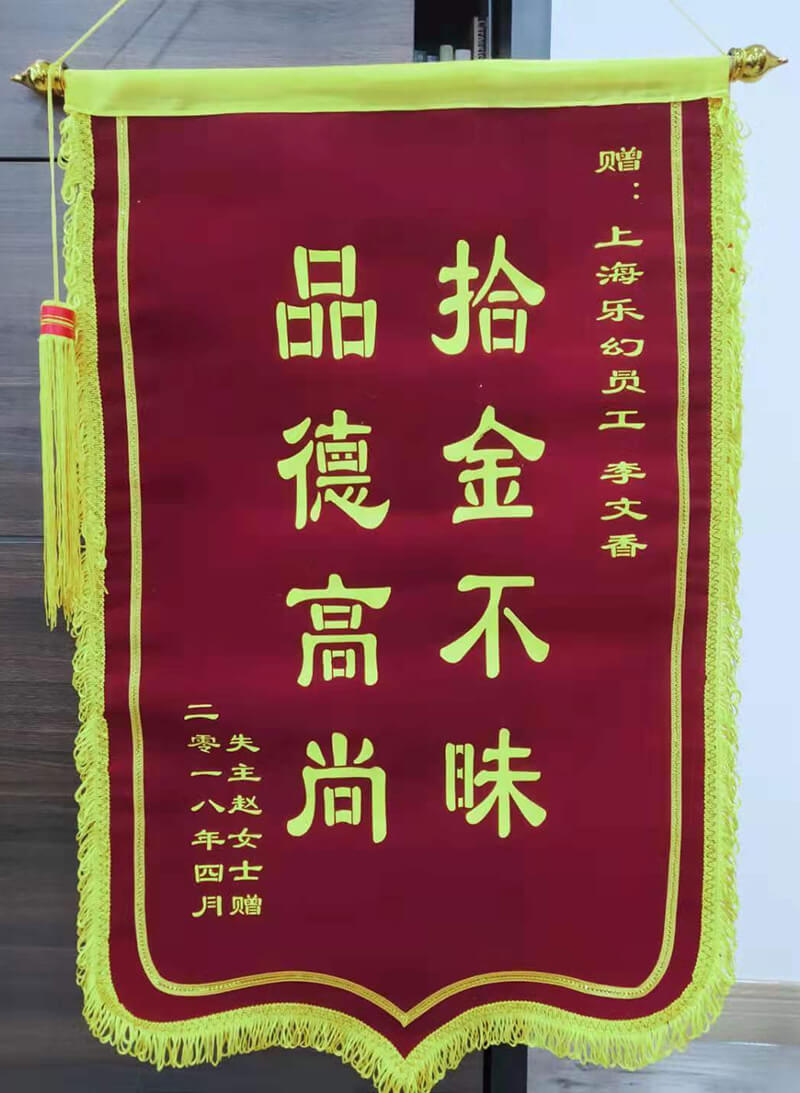 赠：上海乐幻员工 李文香
拾金不昧
品德高尚
失主赵女士赠
二零一八年四月